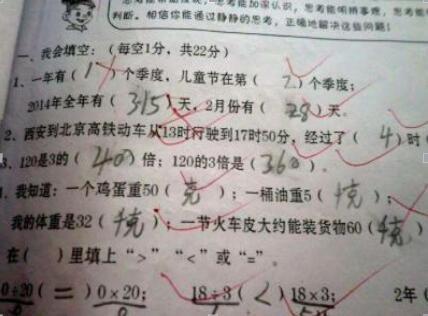 判断。相信你能通过静静的思考，正确地解决这些问题！
一、我会填空：（每空1分，共22分）
1、一年有（ 1 ）个季度，儿童节在第（ 2 ）个季度；
2014年全年有（ 315 ）天，2月份有（ 28 ）天。
2、西安到北京高铁动车从13时行驶到17时50分，经过了（ 4 ）时（
3、120是3的（ 40 ）倍；120的3倍是（ 360 ）。
我知道：一个鸡蛋重50（ 克 ）；一桶油重5（ 千克 ）；
我的体重是32（ 千克 ）；一节火车皮大约能装货物60（ 千克 ）
在（ ）里填上“>”“<”或“=”。
0÷20（ = ）0×20； 18÷3（ < ）18×3； 2年（